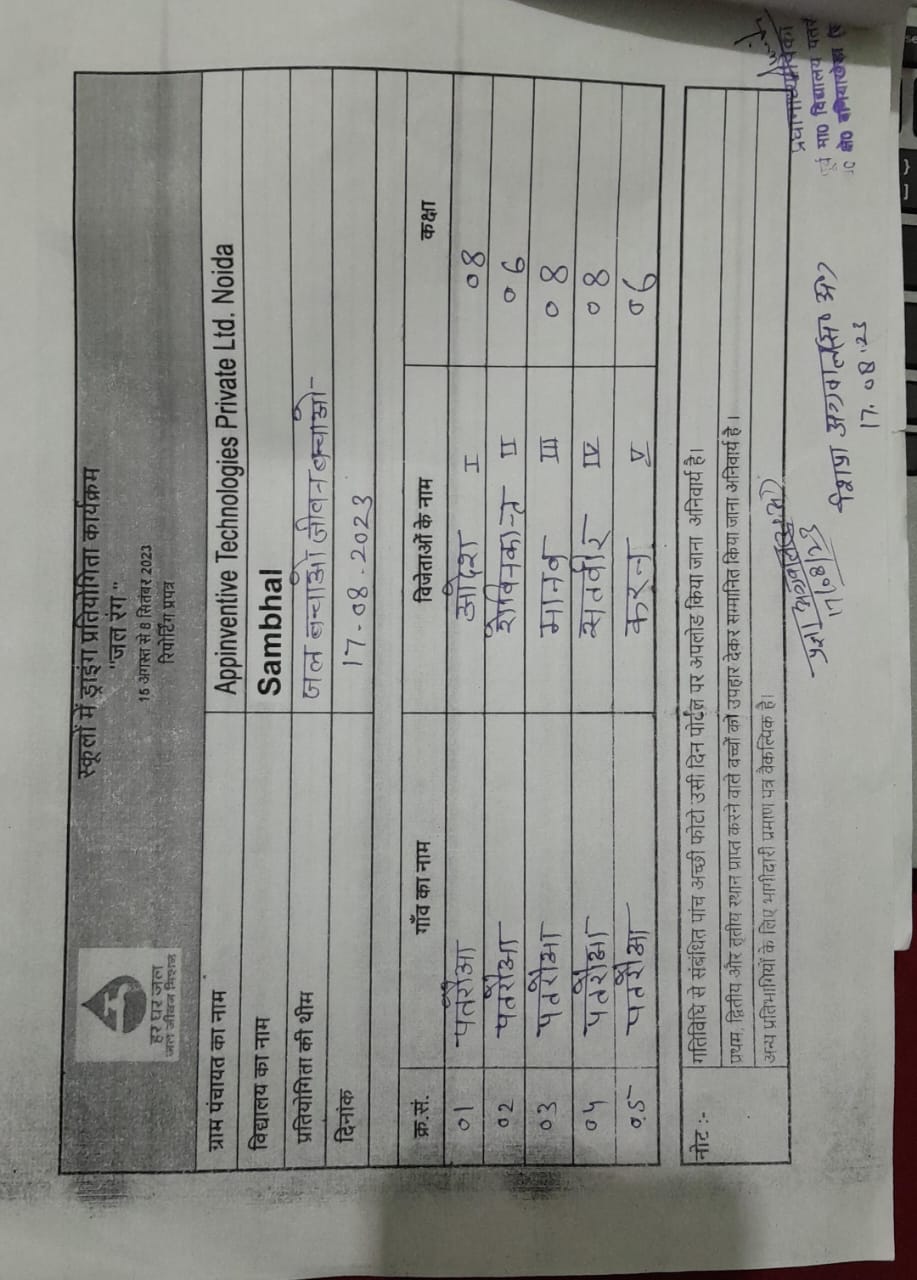 हर घर जल
जल जीवन मिशन
स्कूलों में ड्राइंग प्रतियोगिता कार्यक्रम
"जल रंग"
16 अगस्त से 8 सितंबर 2023
रिपोर्टिंग प्रपत्र
ग्राम पंचायत का नाम Appinventive Technologies Private Ltd. Noida
विद्यालय का नाम Sambhal
प्रतियोगिता की थीम जल बचाओ जीवन बचाओ-
दिनांक 17-08-2023
क्र.सं. गाँव का नाम विजेताओं के नाम कक्षा
01 पतरौआ आदेश I 08
02 पतरौआ II 06
03 पतरौआ मानव III 08
04 पतरौआ सतवीर IV 08
05 पतरौआ करन V 06
नोट :- गतिविधि से संबंधित पांच अच्छी फोटो उसी दिन पोर्टल पर अपलोड किया जाना अनिवार्य है।
प्रथम, द्वितीय और तृतीय स्थान प्राप्त करने वाले बच्चों को उपहार देकर सम्मानित किया जाना अनिवार्य है।
अन्य प्रतिभागियों के लिए भागीदारी प्रमाण पत्र वैकल्पिक है।
17/08/23
अग्रवाल (स० अ०)
17.08.23
प्रधानाध्यापिका
पूर्व मा0 विद्यालय